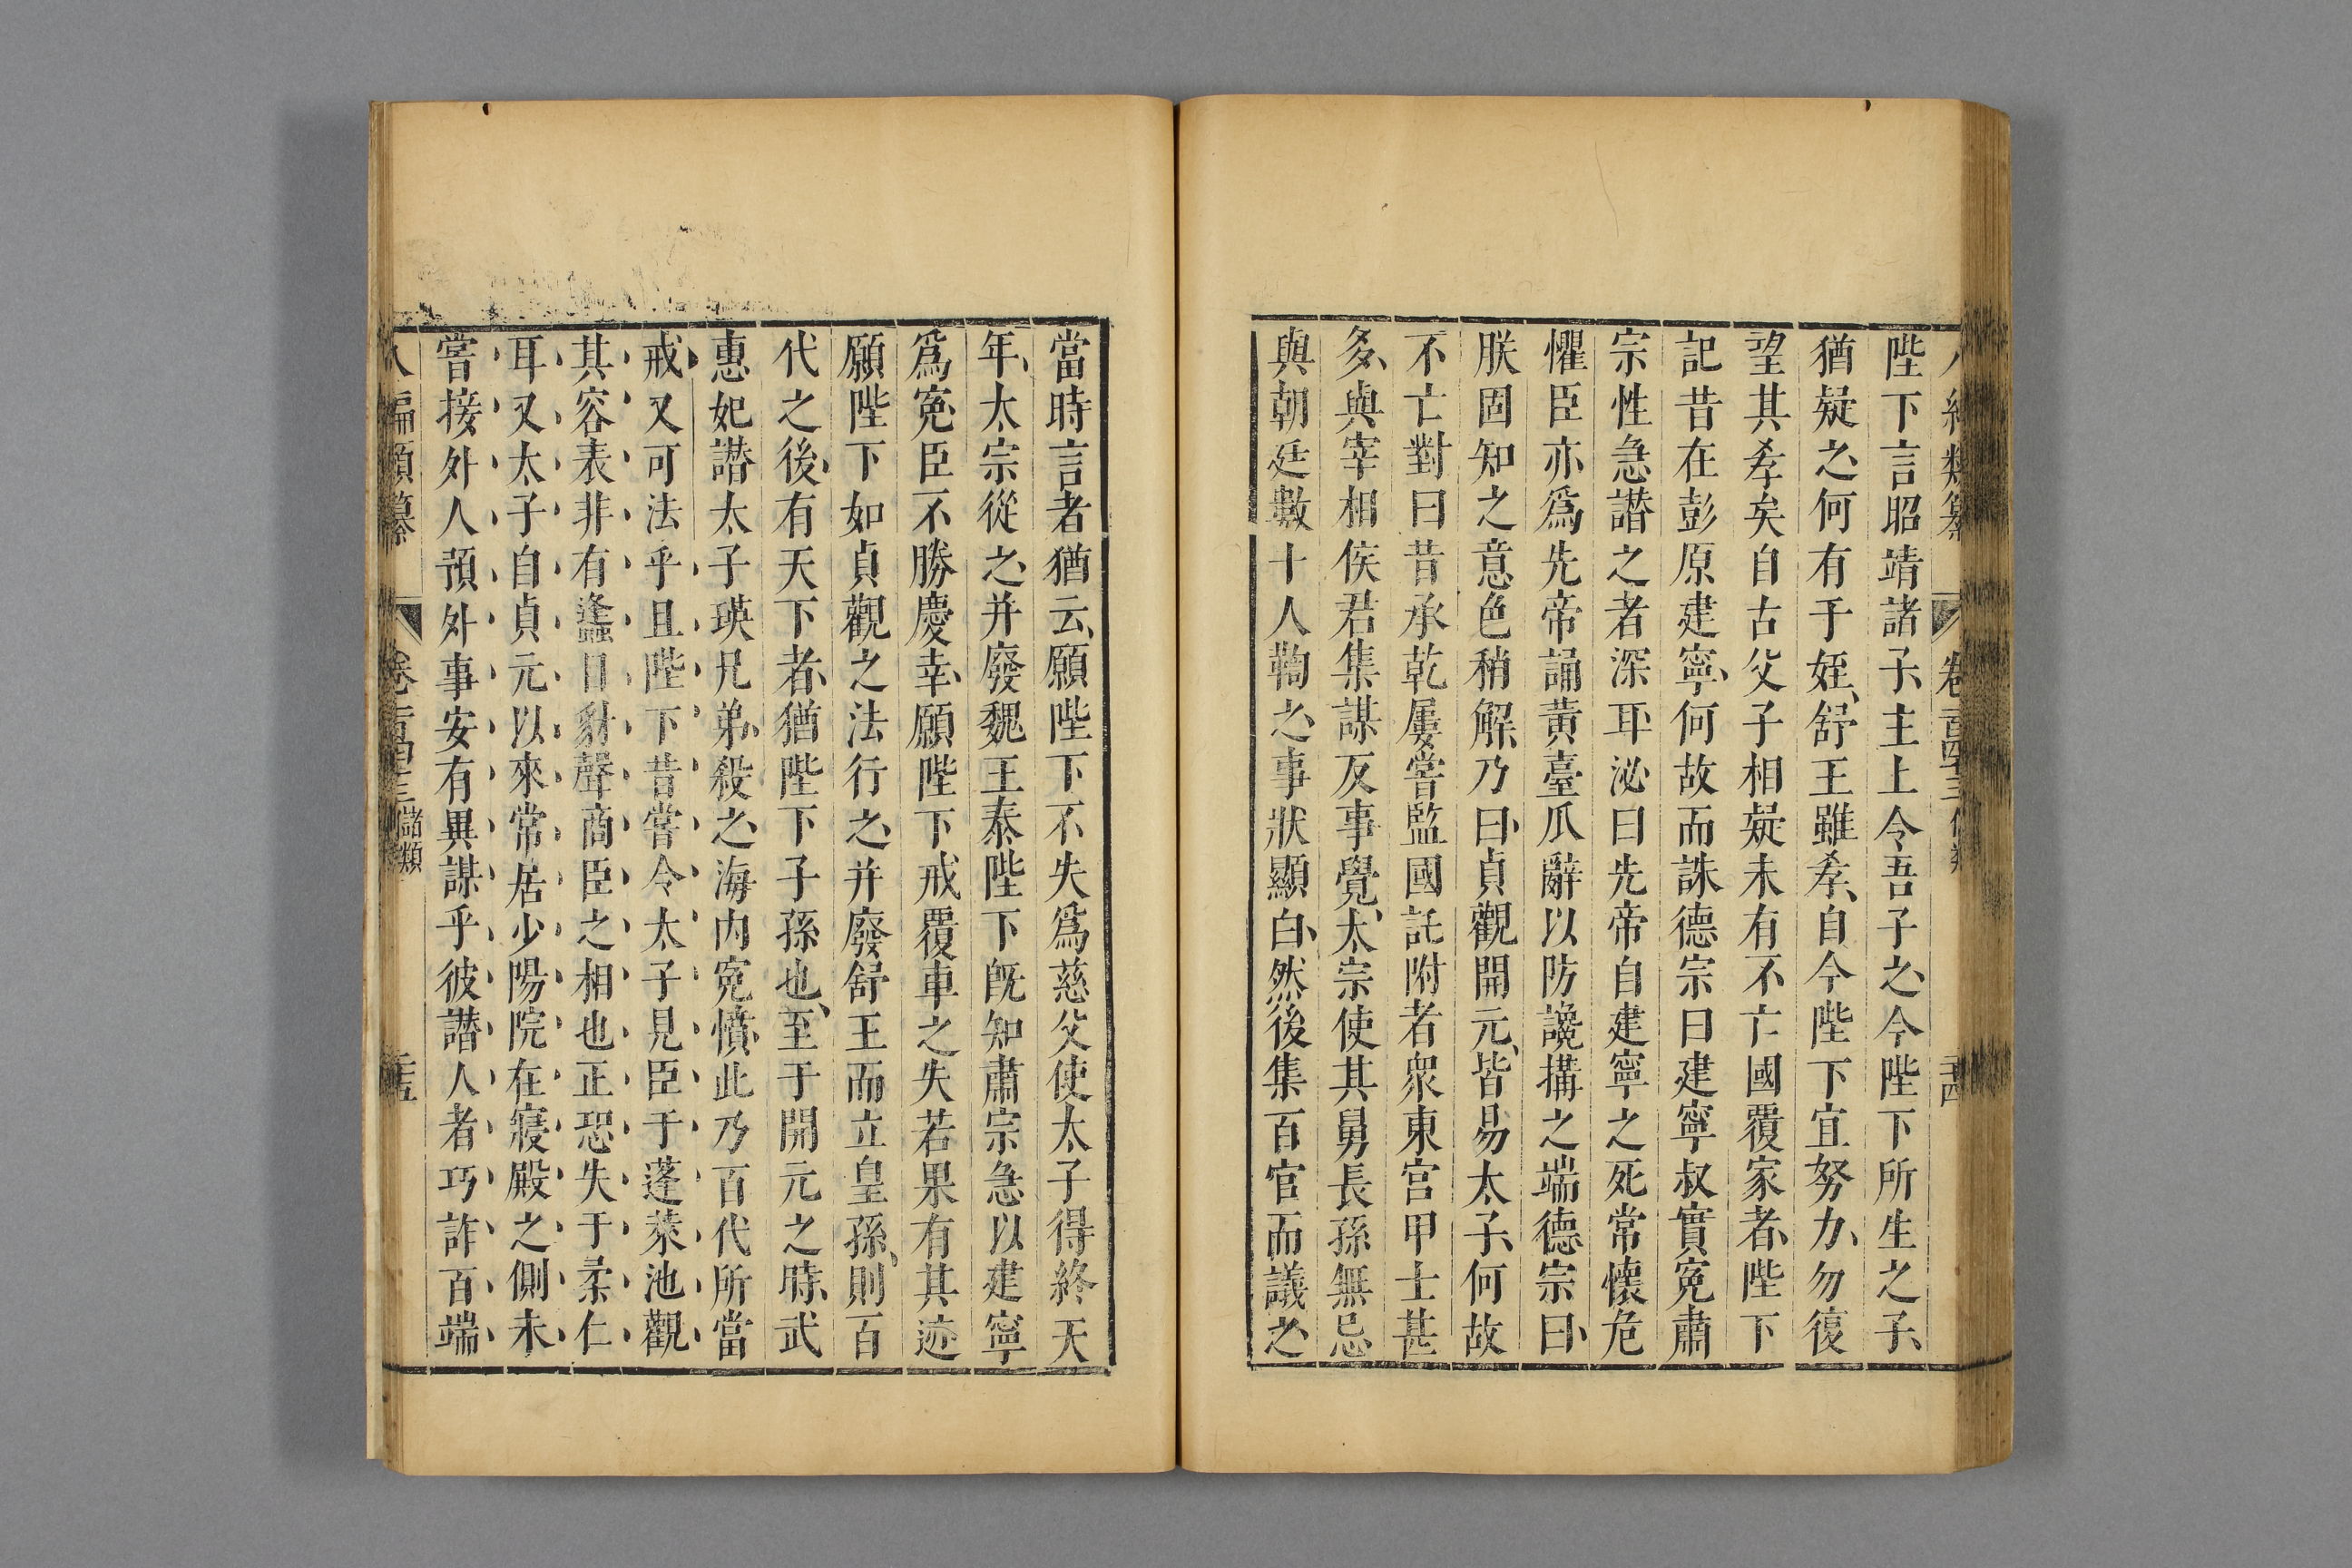 八編類纂 卷一百四十三 儲類 二十四
陛下言昭靖諸子、主上令吾子之、今陛下所生之子、
猶疑之、何有于姪、舒王雖孝、自今陛下宜努力、勿復
望其孝矣自古父子相疑未有不亡國覆家者、陛下
記昔在彭原建寧、何故而誅德宗曰建寧叔實寃肅
宗性急譖之者深耳泌曰先帝自建寧之死常懷危
懼臣亦爲先帝誦黃臺瓜辭以防讒搆之端德宗曰、
朕固知之意色稍解、乃曰、貞觀開元、皆易太子、何故
不亡對曰昔承乾屢嘗監國託附者衆東宮甲士甚
多、與宰相侯君集謀反事覺、太宗使其舅長孫無忌、
與朝廷數十人鞫之、事狀顯白、然後集百官而議之、
當時言者猶云、願陛下不失爲慈父使太子得終天
年、太宗從之、并廢魏王泰陛下旣知肅宗急以建寧
爲寃、臣不勝慶幸、願陛下戒覆車之失若果有其迹
願陛下如貞觀之法行之、并廢舒王而立皇孫、則百
代之後、有天下者、猶陛下子孫也、至于開元之時、武
惠妃譖太子瑛兄弟、殺之、海内寃憤、此乃百代所當
戒又可法乎且陛下昔嘗令太子見臣于蓬萊池觀
其容表非有蠭目豺聲商臣之相也正恐失于柔仁
耳又太子自貞元以來常居少陽院在寢殿之側未
嘗接外人預外事安有異謀乎彼譖人者巧詐百端
八編類纂 卷一百四十三 儲類 二十五